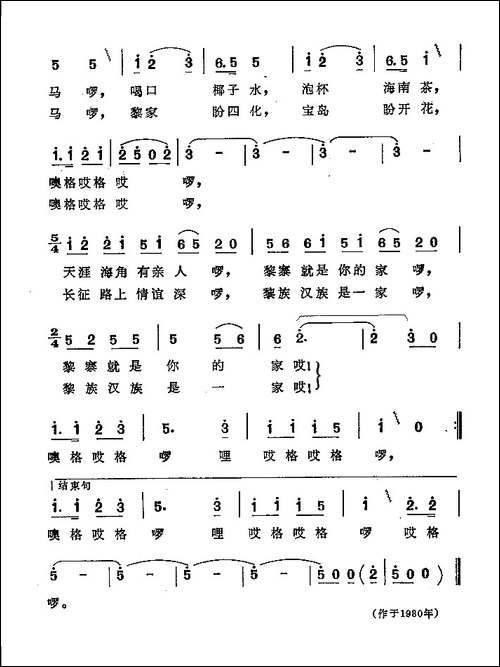 5 5 | i 2 3 | 6.5 5 | i 2 3 | 6.5 i |
马 啰, 喝口 椰子 水, 泡杯 海南 茶,
马 啰, 黎家 盼四 化, 宝岛 盼开 花,
i.i 2 i | 2 5 0 2 | 3 - | 3 - | 3 - | 3 - |
噢格哎格 哎 啰,
噢格哎格 哎 啰,
5/4 i 2 2 i 5 i 6 5 2 0 | 5 6 6 i 5 i 6 5 2 0 |
天涯 海角 有亲 人 啰, 黎寨 就是 你的 家 啰,
长征 路上 情谊 深 啰, 黎族 汉族 是一 家 啰,
2/4 5 2 5 5 | 5 5 | 6 2. | 2 3 0 |
黎 寨 就 是 你 的 家 哎!
黎 族 汉 族 是 一 家 哎!
i. i 2 3 | 5. 3 | i i i 5 | i 0 :||
噢格 哎 格 啰 哩 哎 格 哎 格 啰,
结束句
i. i 2 3 | 5. 3 | i i i 5 | i 2. 2 |
噢格 哎 格 啰 哩 哎 格 哎 格 啰 哎格
5 - | 5 - | 5 - | 5 - | 5 0 0 ( 2 | 5 0 0 ) ||
啰。
(作于1980年)